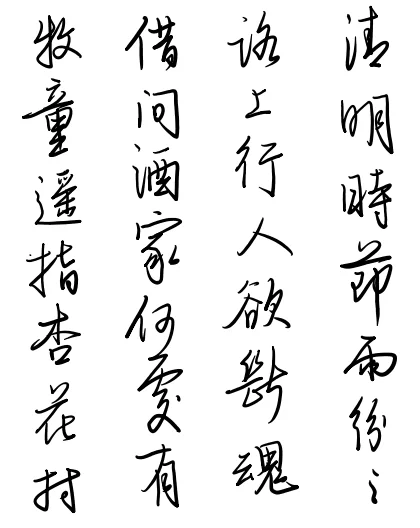 清明時節雨紛〻
路上行人欲斷魂
借問酒家何處有
牧童遙指杏花村